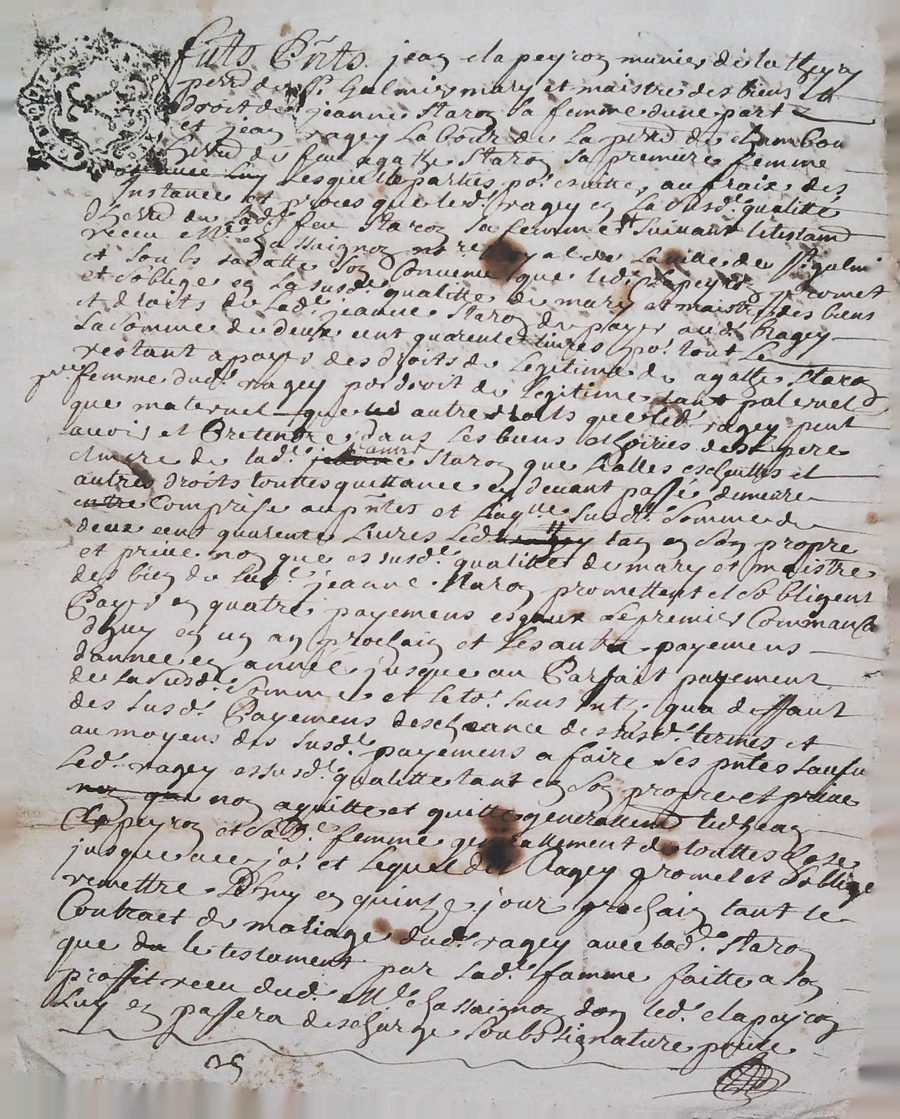 furts Pnts jean clapeyron munier de la
perd de St Galmier mary et maistre des biens
droit de jeanne Staron sa femme dune part
et jean ragey Laboureur de La perd de chambon
herd de feu agathe Staron sa premiere femme
Lesquelle parties po. esvitter aufraix des
Instance et proces que led. ragey en La susd. qualitte
dherd de lad. feu Staron sa femme et suivant letestam
receu Me chassaignon no. re de La ville de St galmi
et soubs sadatte son Convenue que led. Clapeyron promet
et soblige en La susd. qualitte de mary et maistre des biens
et droits de Lad. jeanne Staron de payer aud. Ragey
La somme de deux cent quarente Livres po. tout Le
restant apayer des droits de Legitime de agatte Staron
femme dud. ragey po. droit de legitime tant paternel
que maternel que autre droits que led. ragey peut
avoir et Pretendre dans Les biens et hoiries des pere
et mere de lad. Staron que dalles escheuttes et
autres droits touttes quittance cy devant passé demeure
Comprise au pnts et Laquelle susd. somme de
deux cent quarente Livres Led. tan en son propre
et prive nom que essusd. qualitte de mary et maistre
des bien de Lad. jeanne Staron promettent et sobligent
Payer en quatre payemens esgaux Le premier Commance
dhuy en un an prochain et Les autre payemens
dannee en année jusque au Parfait payement
de La susd. somme et le to. sans Int. qua deffaut
des susd. Payemens descheance des susd. termes et
au moyens des susd. payemens a faire Ses pntes
Led. ragey essusd. qualitte tant en son propre et prive
nom aquitte et quitte generallem led. jean
Clapeyron et sad. femme generallement de touttes Choses
jusque a ce jo. et Lequel d. Ragey promet et soblige
remettre Dhuy en quinze jour prochain tant le
Contract de mariage dud. ragey avec lad. Staron
que le testament par Lad. femme faitte a son
proffit receu dud. Me chassaignon don led. clapeyron
Luy en passera descharge soubs signature prive